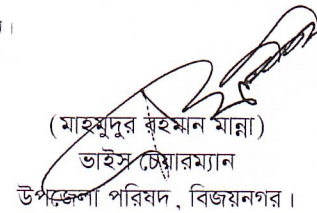 (মাহমুদুর রহমান মান্না)
ভাইস চেয়ারম্যান
উপজেলা পরিষদ, বিজয়নগর।